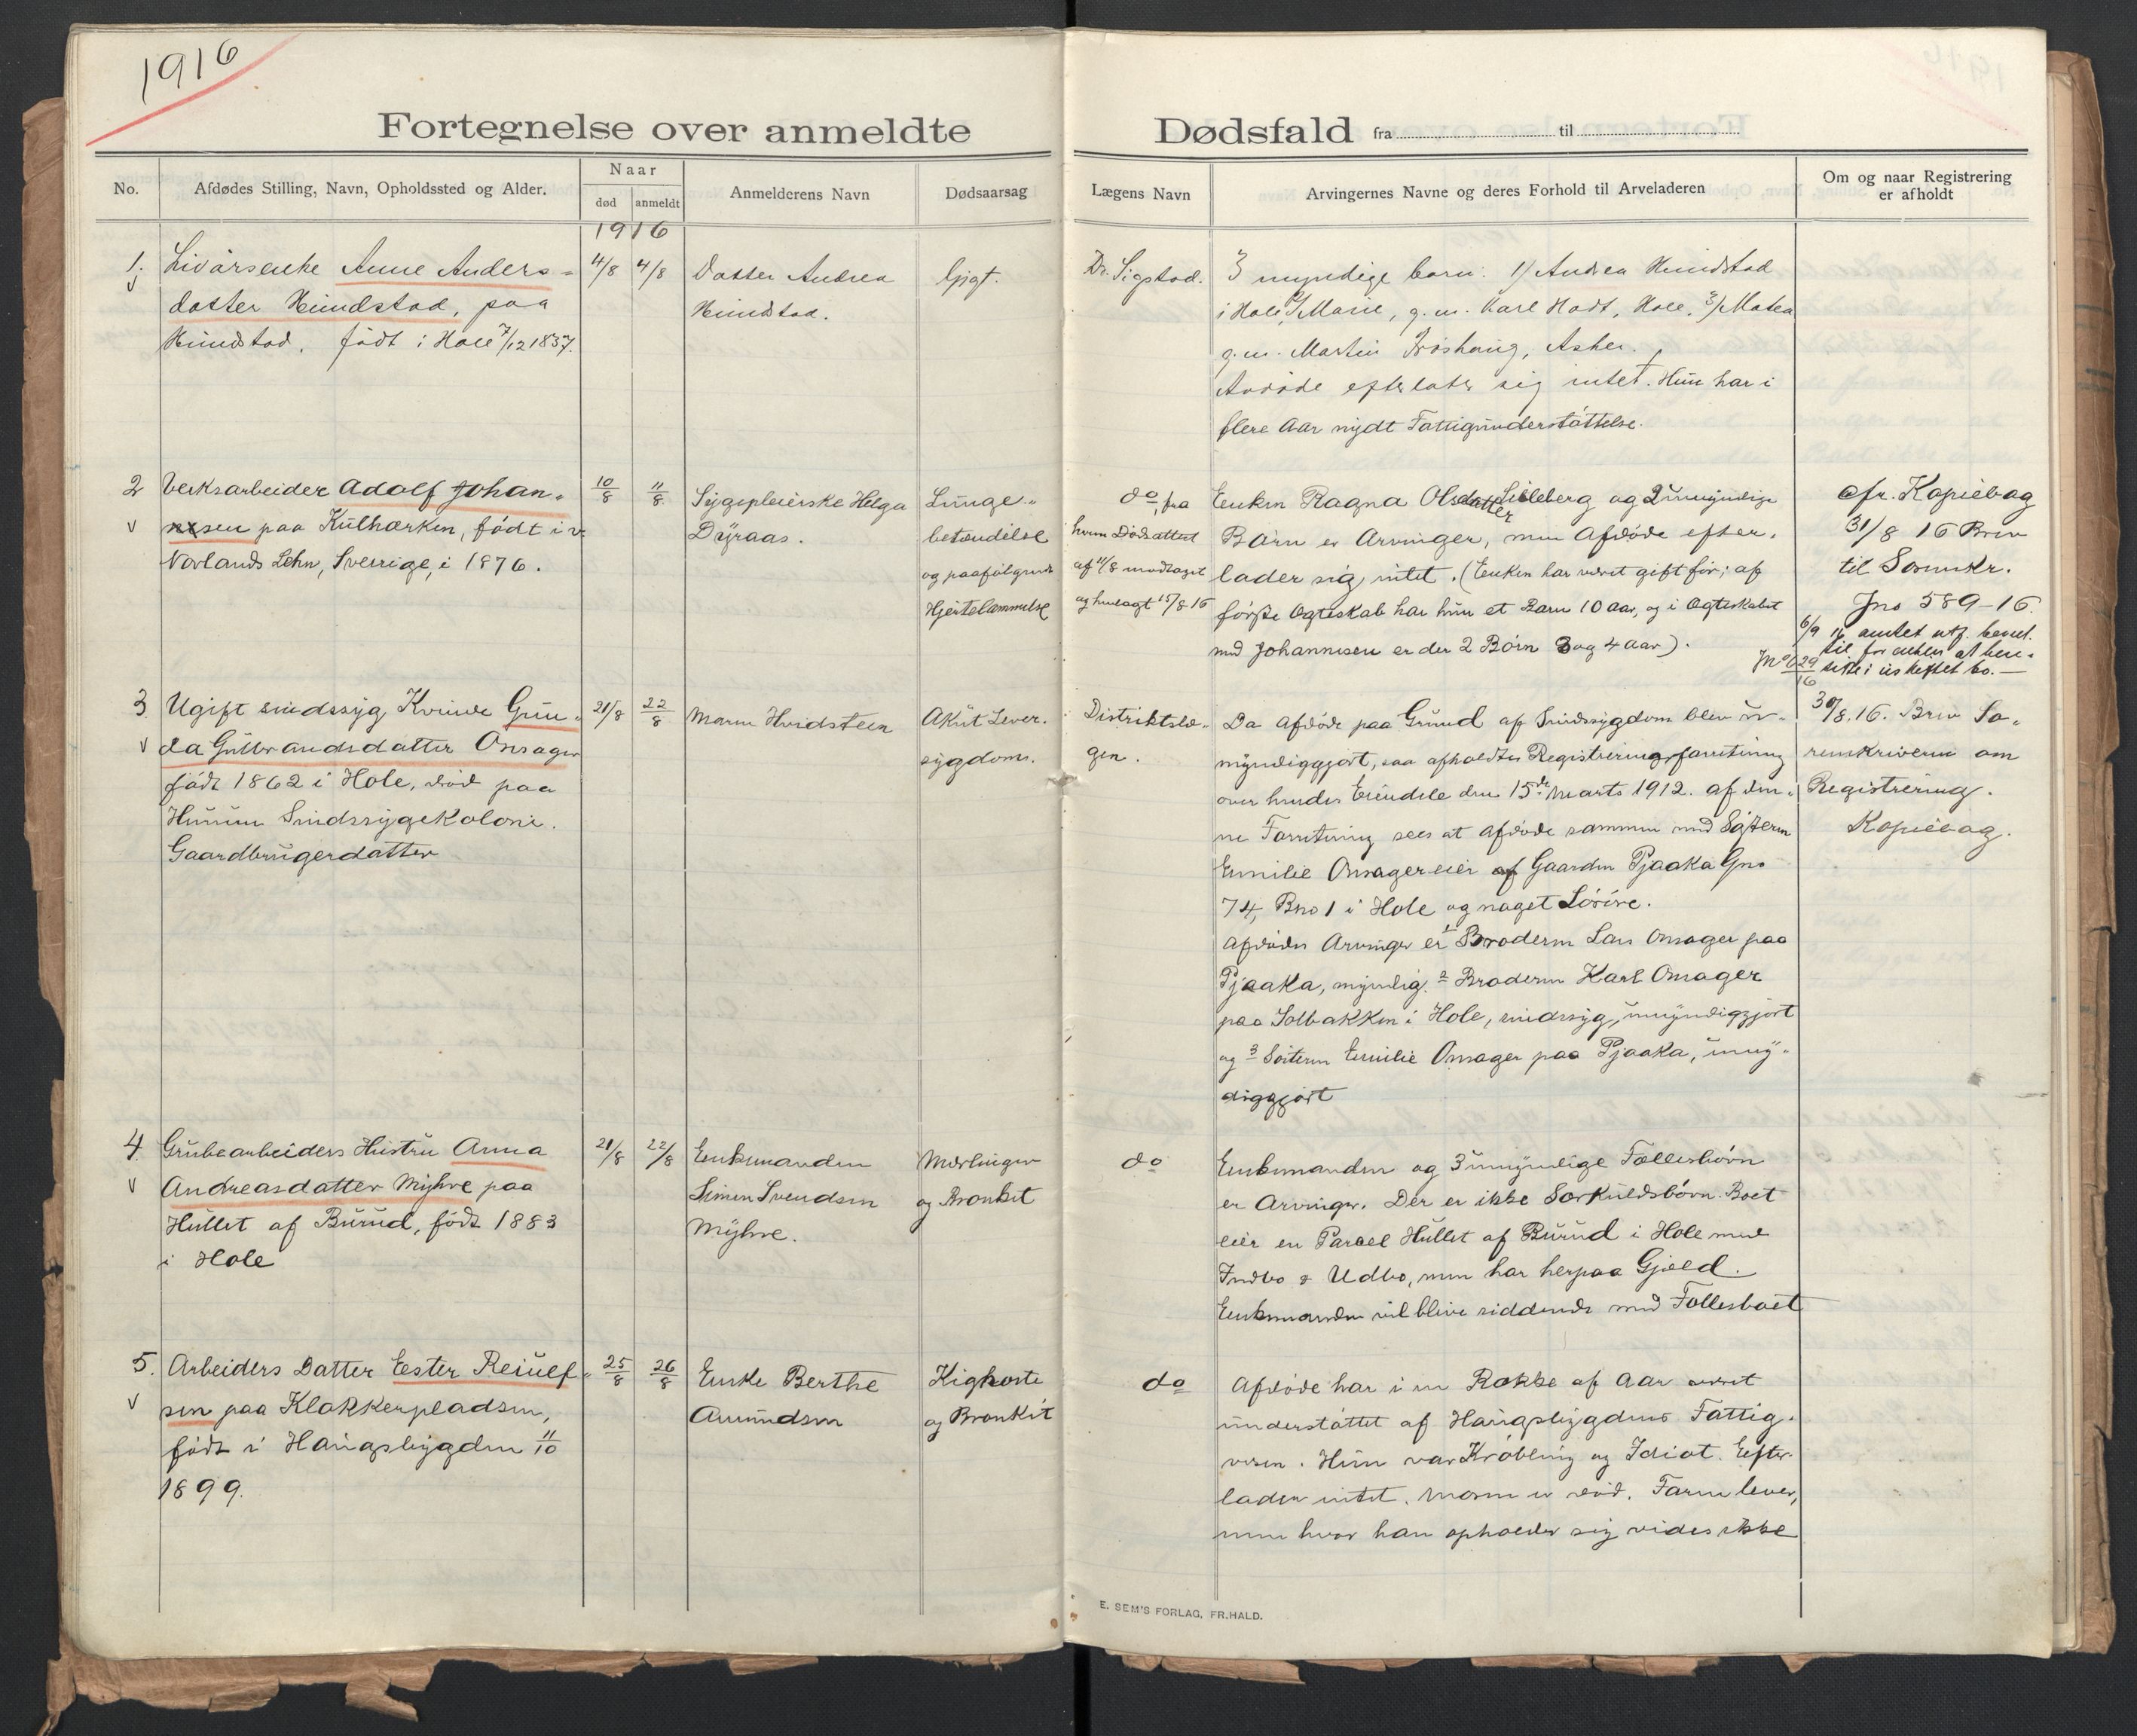 1916
Fortegnelse over anmeldte Dødsfald fra til
No.
Afdødes Stilling, Navn, Opholdssted og Alder.
Naar
død
anmeldt
Anmelderens Navn
Dødsaarsag
Lægens Navn
Arvingernes Navne og deres Forhold til Arveladeren
Om og naar Registrering
er afholdt
1916
1.
Livårsenke Anne Anders-
datter Hundstad, paa
Hundstad, født i Hole 7/12 1837.
4/8
4/8
Datter Andrea
Hundstad.
Gigt.
Dr. Sigstad.
3 myndige barn: 1/ Andrea Hundstad
i Hole, 2/ Marie, g.m. Karl Hodt, Hole, 3/ Matea
g.m. Martin Asker.
Avdøde efterlater sig intet. Hun har i
flere Aar nydt Fattigunderstøttelse.
2
Verksarbeider Adolf Johan-
nesen paa Kulhærken, født i v.
Norlands Lehn, Sverrige, i 1876.
10/8
11/8
Sygepleierske Helga
Dyraas.
Lunge-
betændelse
og paafølgende
Hjertelammelse
do, fra
hvem Dødsattest
af 11/8 modtaget
og henlagt 15/8 16
Enken Ragna Olsdatter Lilleberg og 2 umyndige
Børn er Arvinger, men Afdøde efter-
lader sig intet. (Enken har været gift før; af
første Ægteskab har hun et Barn 10 aar, og i Ægteskabet
med Johannesen er der 2 Børn 3 og 4 aar).
cfr. Kopiebog
31/8 16 Brev
til Sorenskr.
Jno 589-16.
6/9 16 amtet utf. bevil.
til for enken at hen-
Jno 629/16 sitte i uskiftet bo.
3.
Ugift sindssyg Kvinde Gun-
da Gulbrandsdatter Onsager
født 1862 i Hole, død paa
Hurum Sindssygekoloni.
Gaardbrugerdatter
21/8
22/8
Maren Hvidsteen
Akut Lever-
sygdom.
Distriktslæ-
gen.
Da afdøde paa Grund af Sindssygdom blev u-
myndiggjort, saa afholdtes Registreringsforretning
over hendes Eiendele den 15de Marts 1912. af den-
ne Forretning sees at afdøde sammen med Søsteren
Emilie Onsager eier af Gaarden Pjaaka Gno
74, Bno 1 i Hole og noget Løsøre.
Afdødes Arvinger er 1 Broderen Lars Onsager paa
Pjaaka, myndig. 2 Broderen Karl Onsager
paa Solbakken i Hole, sindssyg, umyndiggjort
og 3 Søsteren Emilie Onsager paa Pjaaka, umyn-
diggjort
30/8.16. Brev So-
renskriveren om
Registrering.
Kopiebog.
4.
Grubearbeiders Hustru Anna
Andreasdatter Myhre paa
Hullet af Burud, født 1883
i Hole
21/8
22/8
Enkemanden
Simen Svendsen
Myhre.
Mæslinger
og Bronkit
do
Enkemanden og 3 umyndige Fællesbørn
er Arvinger. Der er ikke Særkuldsbørn. Boet
eier en Parcel Hullet af Burud i Hole med
Indbo & Udbo, men har herpaa Gjæld.
Enkemanden vil blive siddende med Fællesboet
5.
Arbeiders Datter Ester Reiulf-
sen paa Klokkerpladsen,
født i Haugsbygden 11/10
1899.
25/8
26/8
Enke Berthe
Amundsen
Kighoste
og Bronkit
do
Afdøde har i en Række af Aar været
understøttet af Haugsbygdens Fattig-
væsen. Hun var Krøbling og Idiot. Efter-
lader intet. Moren er død. Faren lever,
men hvor han opholder sig vides ikke
E. SEM'S FORLAG, FR.HALD.